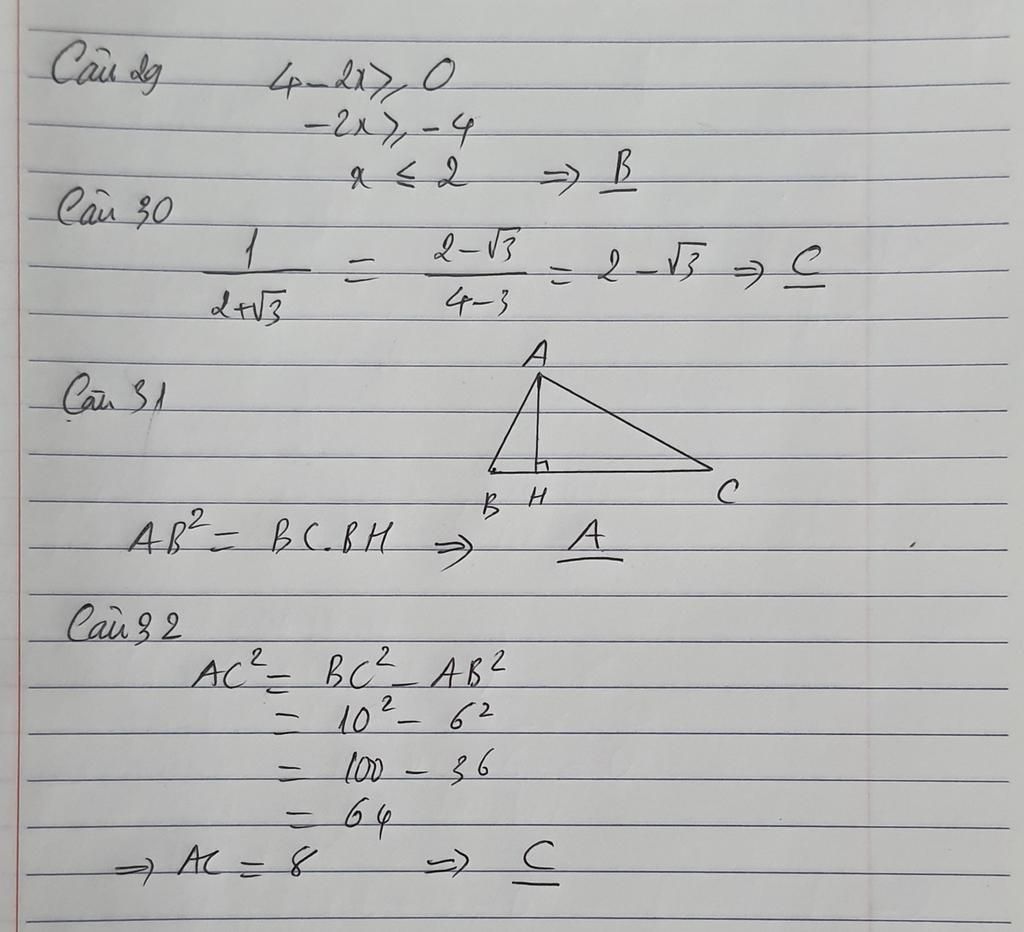 Câu 29 4 - 2x ⩾ 0
-2x ⩾ -4
x ≤ 2 ⇒ B
Câu 30
1/(2+√3) = (2-√3)/(4-3) = 2 - √3 ⇒ C
A
Câu 31
B H C
AB² = BC.BH ⇒ A
Câu 32
AC² = BC² - AB²
= 10² - 6²
= 100 - 36
= 64
⇒ AC = 8 ⇒ C